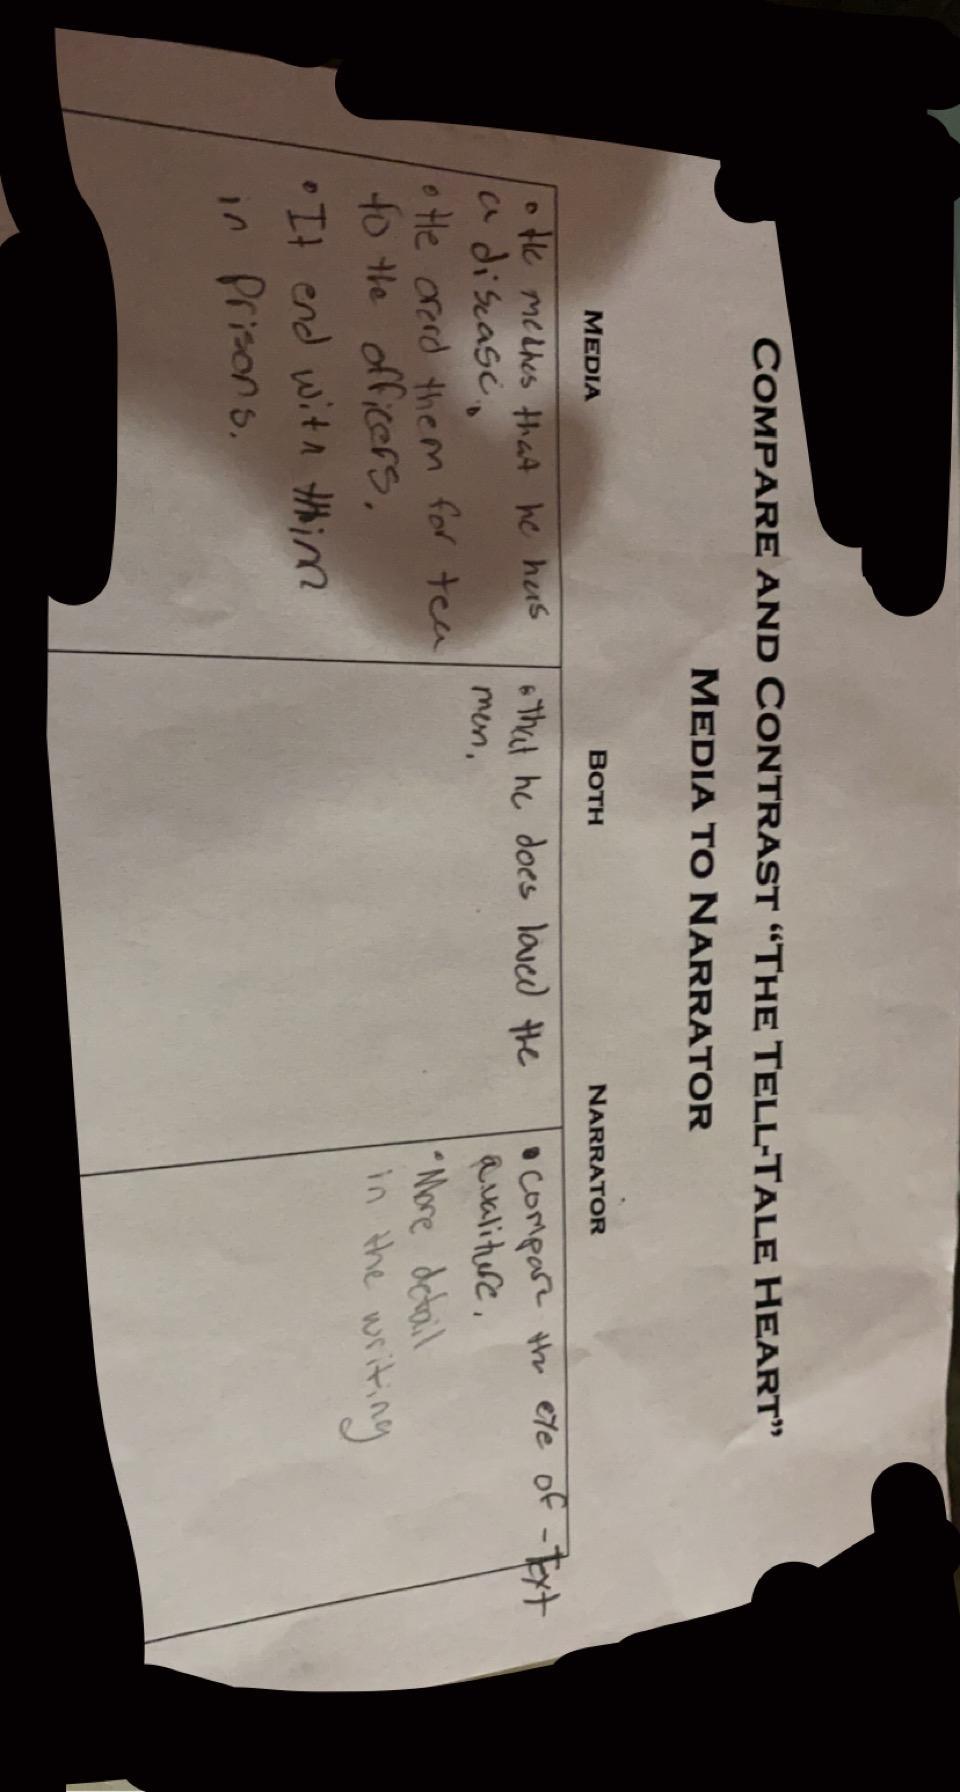 COMPARE AND CONTRAST “THE TELL-TALE HEART”
MEDIA TO NARRATOR
MEDIA
BOTH
NARRATOR
• He methes that he has
a disease.
• He ored them for tea
to the officers.
• It end with thinn
in prisons.
• That he does loved the
man.
• compare the eye of - Text
a valiture.
• More detail
in the writing